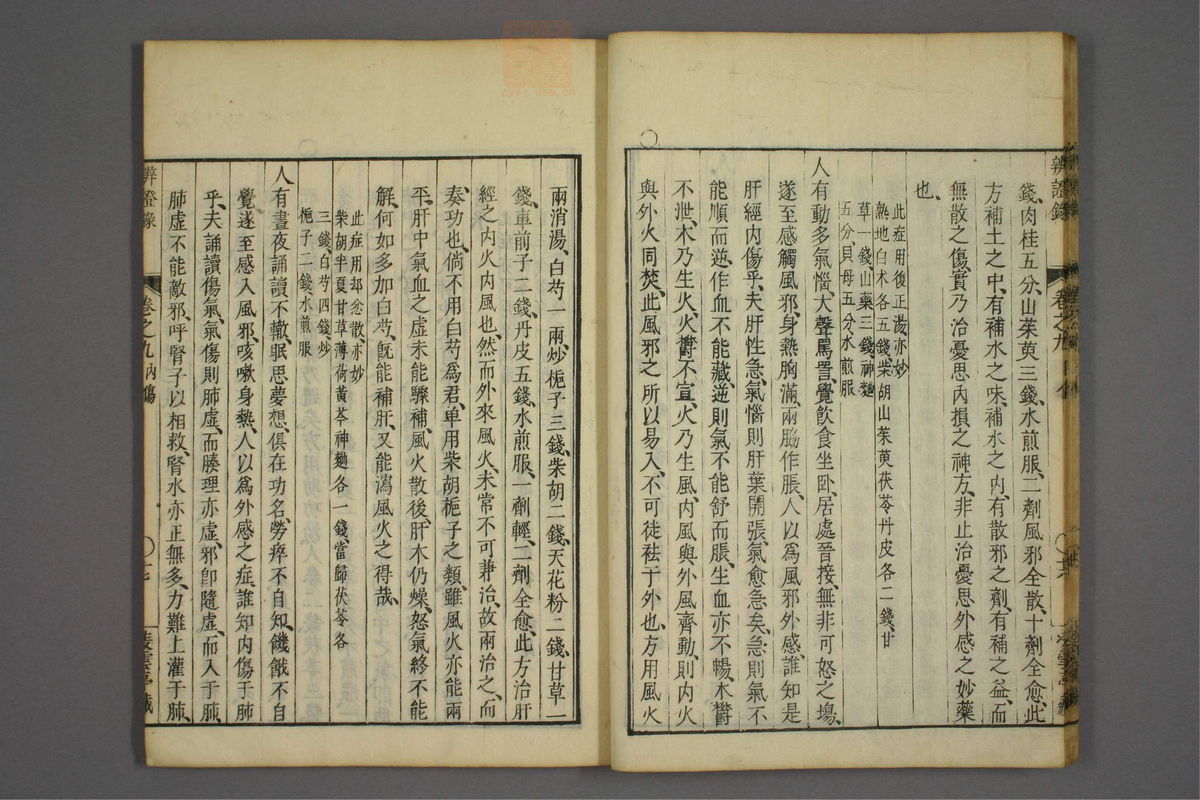 辨證錄
錢、肉桂五分、山茱萸三錢、水煎服、二劑風邪全散、十劑全愈、此
方補土之中、有補水之味、補水之內、有散邪之劑、有補之益、而
無散之傷、實乃治憂思內損之神方、非止治憂思外感之妙藥
也、
此症用後正湯亦妙
熟地白朮各五錢柴胡山茱萸茯苓丹皮各二錢甘
草一錢山藥三錢神麯
五分貝母五分水煎服
人有動多氣惱、大聲罵詈、覺飲食坐臥居處晉接、無非可怒之塲、
遂至感觸風邪、身熱胸滿、兩脇作脹、人以爲風邪外感、誰知是
肝經內傷乎、夫肝性急、氣惱則肝葉開張、氣愈急矣、急則氣不
能順而逆、作血不能藏、逆則氣不能舒而脹、生血亦不暢、木鬱
不泄、木乃生火、火鬱不宣、火乃生風、內風與外風齊動、則內火
與外火同焚、此風邪之所以易入、不可徒祛于外也、方用風火
兩消湯、白芍一兩、炒梔子三錢、柴胡二錢、天花粉二錢、甘草一
錢、車前子二錢、丹皮五錢、水煎服、一劑輕、二劑全愈、此方治肝
經之內火內風也、然而外來風火、未常不可兼治、故兩治之、而
奏功也、倘不用白芍爲君、单用柴胡梔子之類、雖風火亦能兩
平、肝中氣血之虛、未能驟補、風火散後、肝木仍燥、怒氣終不能
解、何如多加白芍、旣能補肝、又能瀉風火之得哉、
此症用却忿散亦妙
柴胡半夏甘草薄荷黃芩神麯各一錢當歸茯苓各
三錢白芍四錢炒
梔子二錢水煎服
人有晝夜誦讀不輟、眠思夢想、俱在功名、勞瘁不自知、饑餓不自
覺、遂至感入風邪、咳嗽身熱、人以爲外感之症、誰知內傷于肺
乎、夫誦讀傷氣、氣傷則肺虛、而腠理亦虛、邪卽隨虛、而入于肺、
肺虛不能敵邪、呼腎子以相救、腎水亦正無多、力難上灌于肺、
辨證錄
卷之九內傷